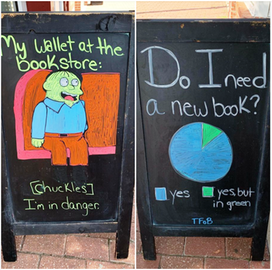 My Wallet at the
bookstore:
[chuckles]
I'm in danger.
Do I need
a new book?
yes
yes, but
in green
TFOB